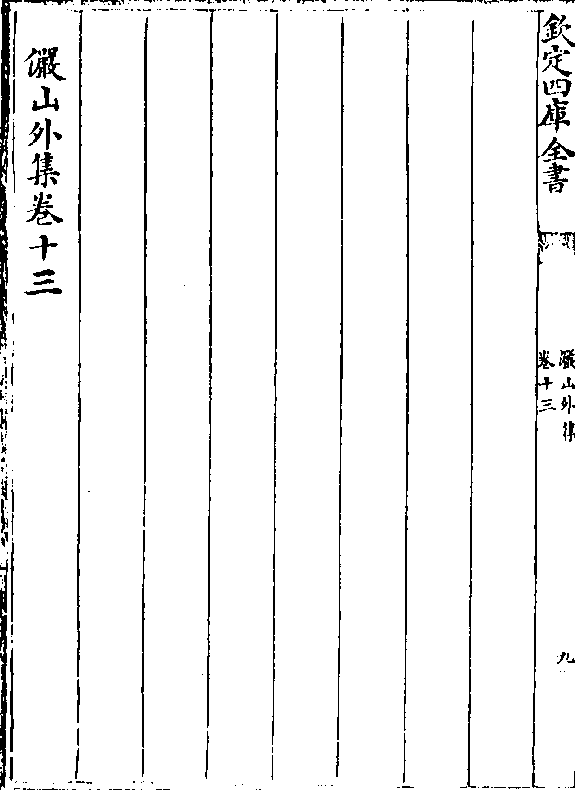 欽定四庫全書
儼山外集
卷十三
九
儼山外集卷十三